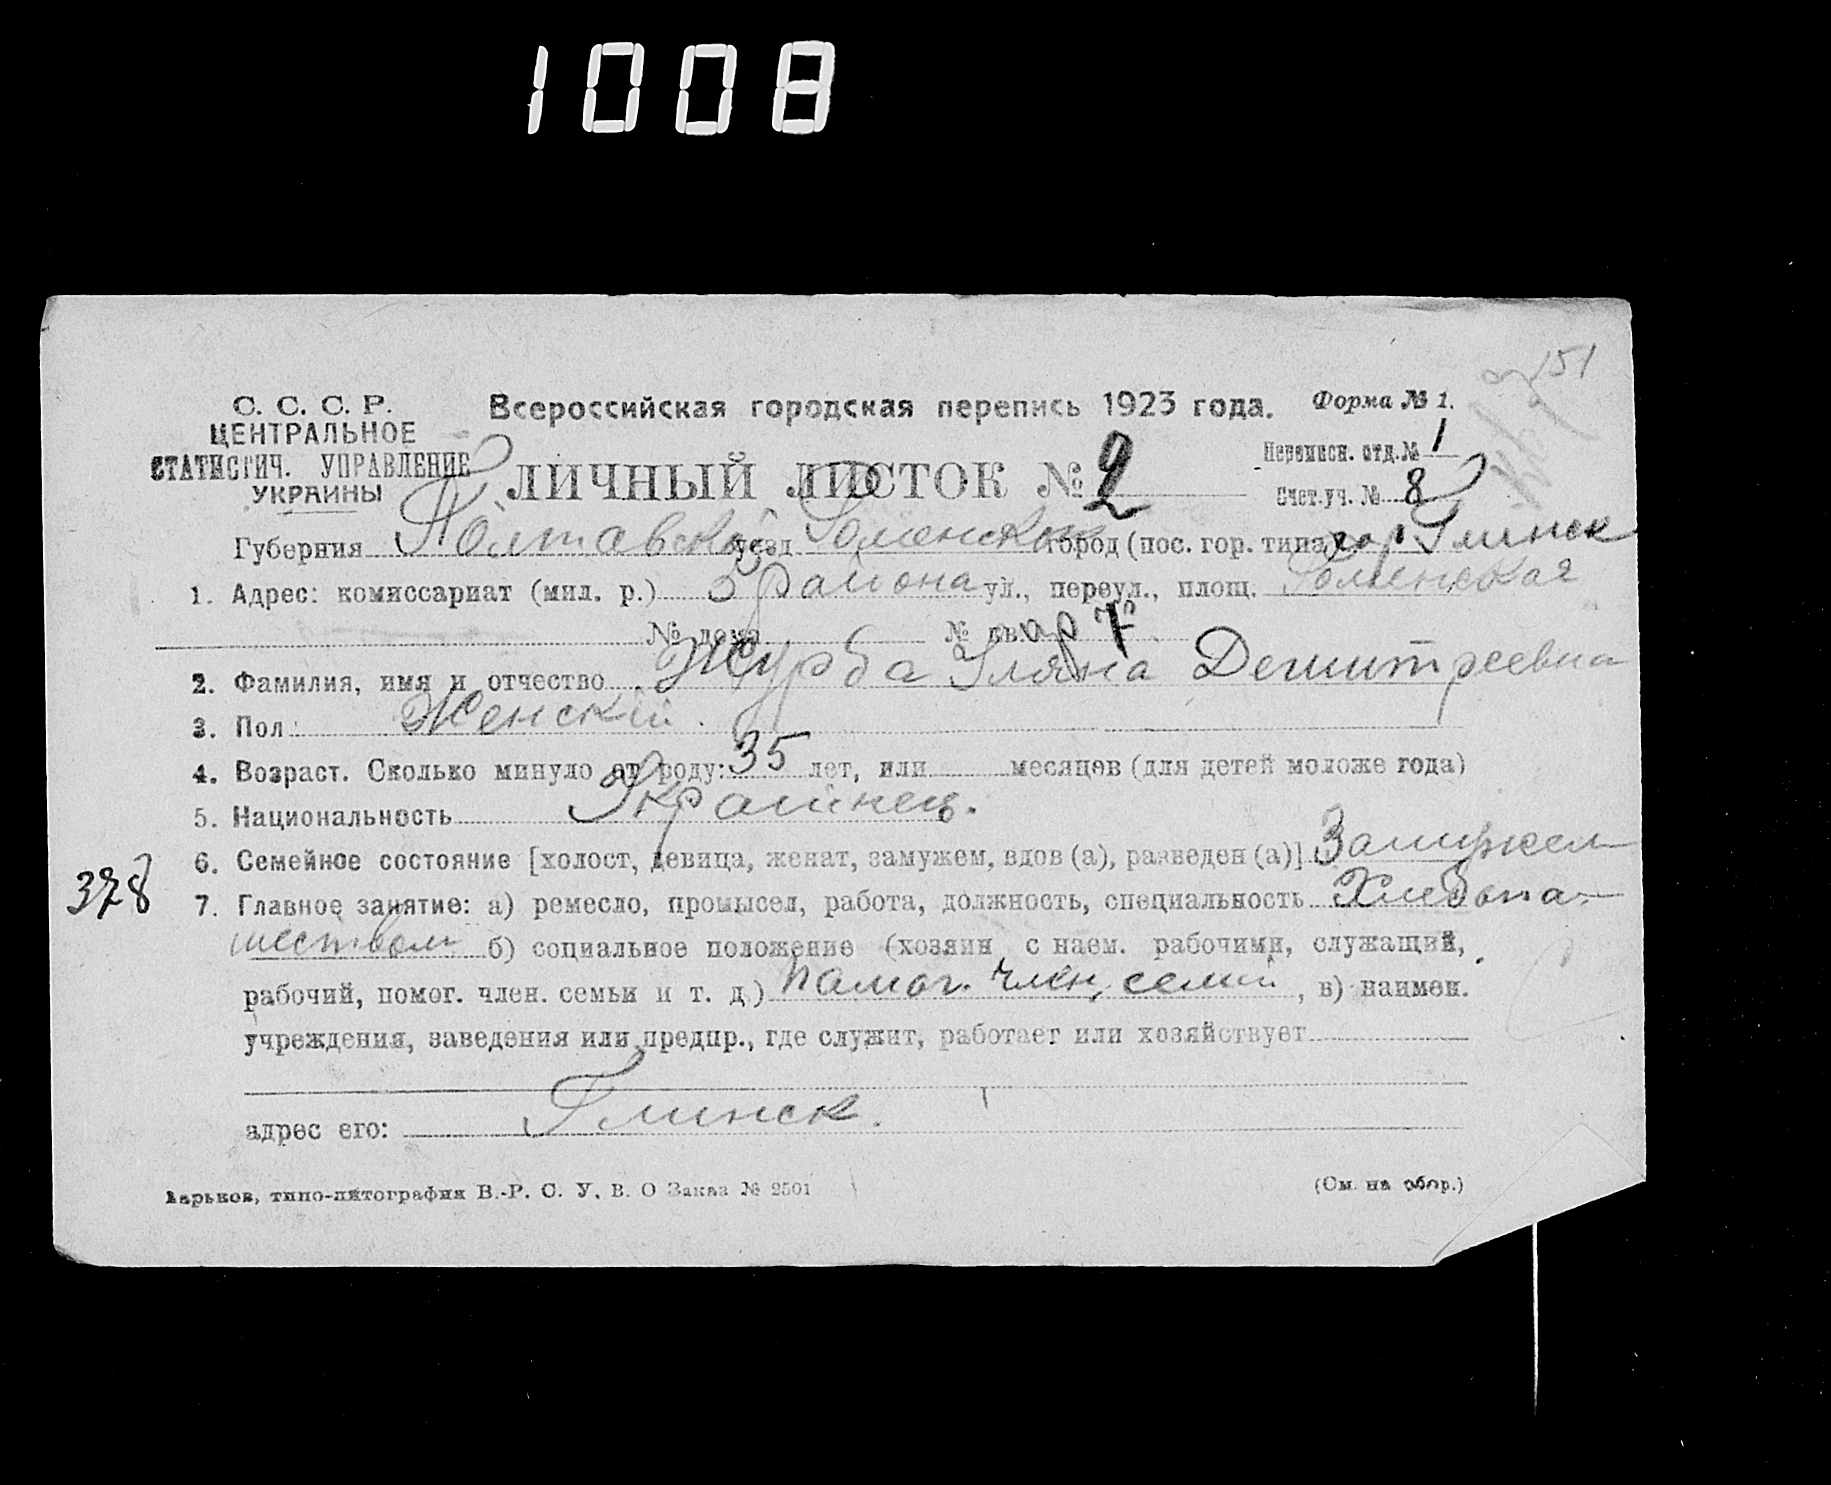 1008
151
С. С. С. Р. Всероссийская городская перепись 1923 года. Форма № 1.
ЦЕНТРАЛЬНОЕ
СТАТИСТИЧ. УПРАВЛЕНИЕ
УКРАИНЫ
Переписн. отд. № 1
ЛИЧНЫЙ ЛИСТОК № 2
Счет. уч. № 8
Губерния Полтавск уезд Роменский город (пос. гор. типа) гор Глинск
1. Адрес: комиссариат (мил. р.) 3 района ул., переул., площ. Роменская
№ дома № квар 7
2. Фамилия, имя и отчество Журба Уляна Демитреевна
3. Пол: Женскій.
4. Возраст. Сколько минуло от роду: 35 лет, или месяцев (для детей моложе года)
5. Национальность Украинец.
6. Семейное состояние [холост, девица, женат, замужем, вдов (а), разведен (а)] Замужем
378
7. Главное занятие: а) ремесло, промысел, работа, должность, специальность Хлебопа-
шеством б) социальное положение (хозяин с наем. рабочими, служащий,
рабочий, помог. член. семьи и т. д.) памог. член. семи, в) наимен.
учреждения, заведения или предпр., где служит, работает или хозяйствует
адрес его: Глинск.
Харьков, типо-литография В.-Р. С. У. В. О Заказ № 2501 (См. на обор.)